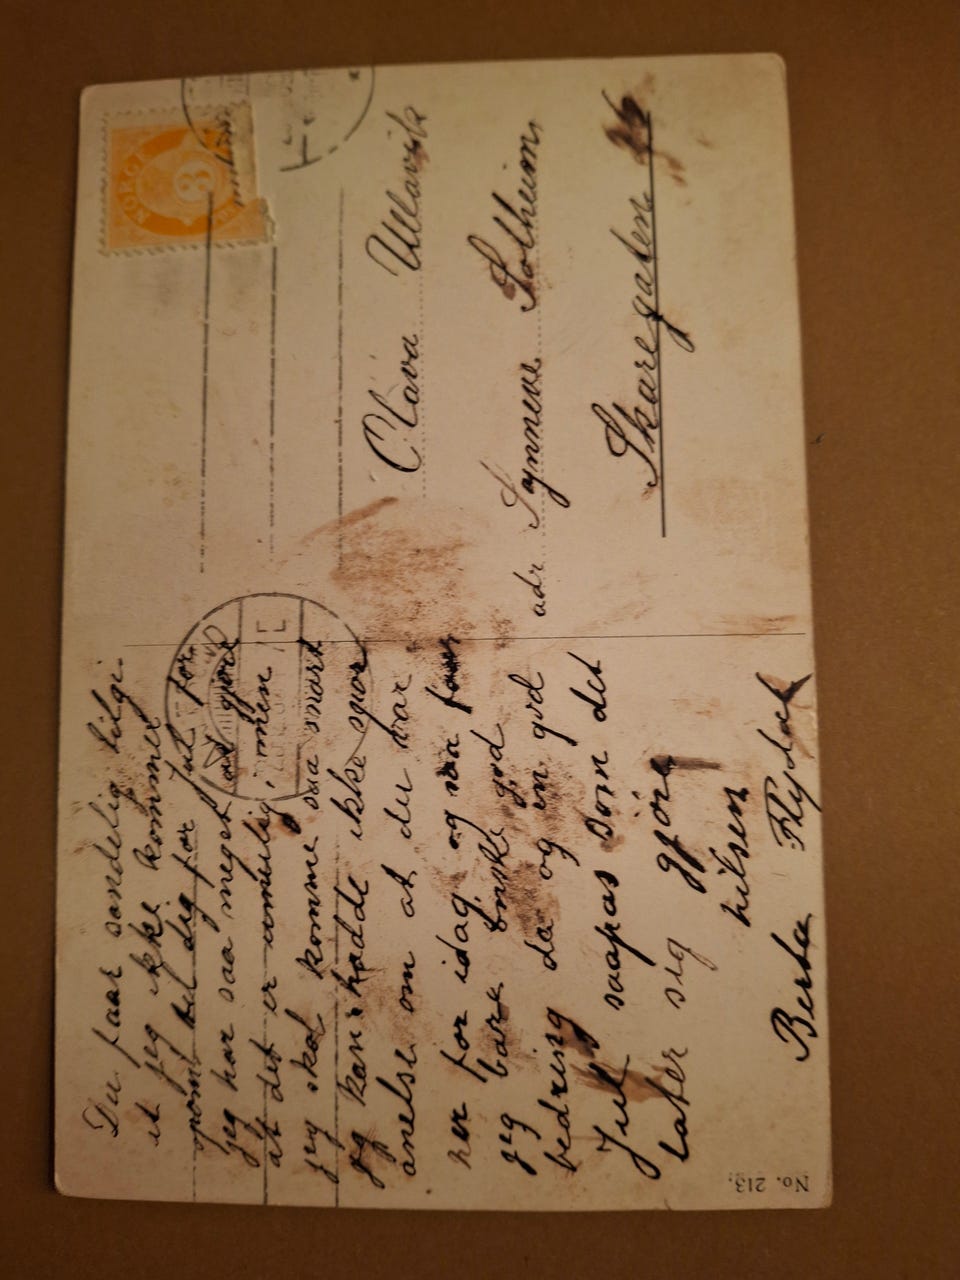 Du faar sandelig tilgi
at jeg ikke kommer
opom til dig før jul for
jeg har saa meget at gjøre
at det er umulig, men
jeg skal komme saa snart
jeg kan. hadde ikke
anelse om at du var
her før idag og saa
jeg bare ønske god
bedring da og en god
Jul saapas som det
later sig gjøre
hilsen
Berta
NORGE
3
Clara Ullavik
adr. Synneve Solheim
Skaregaten
No. 213.